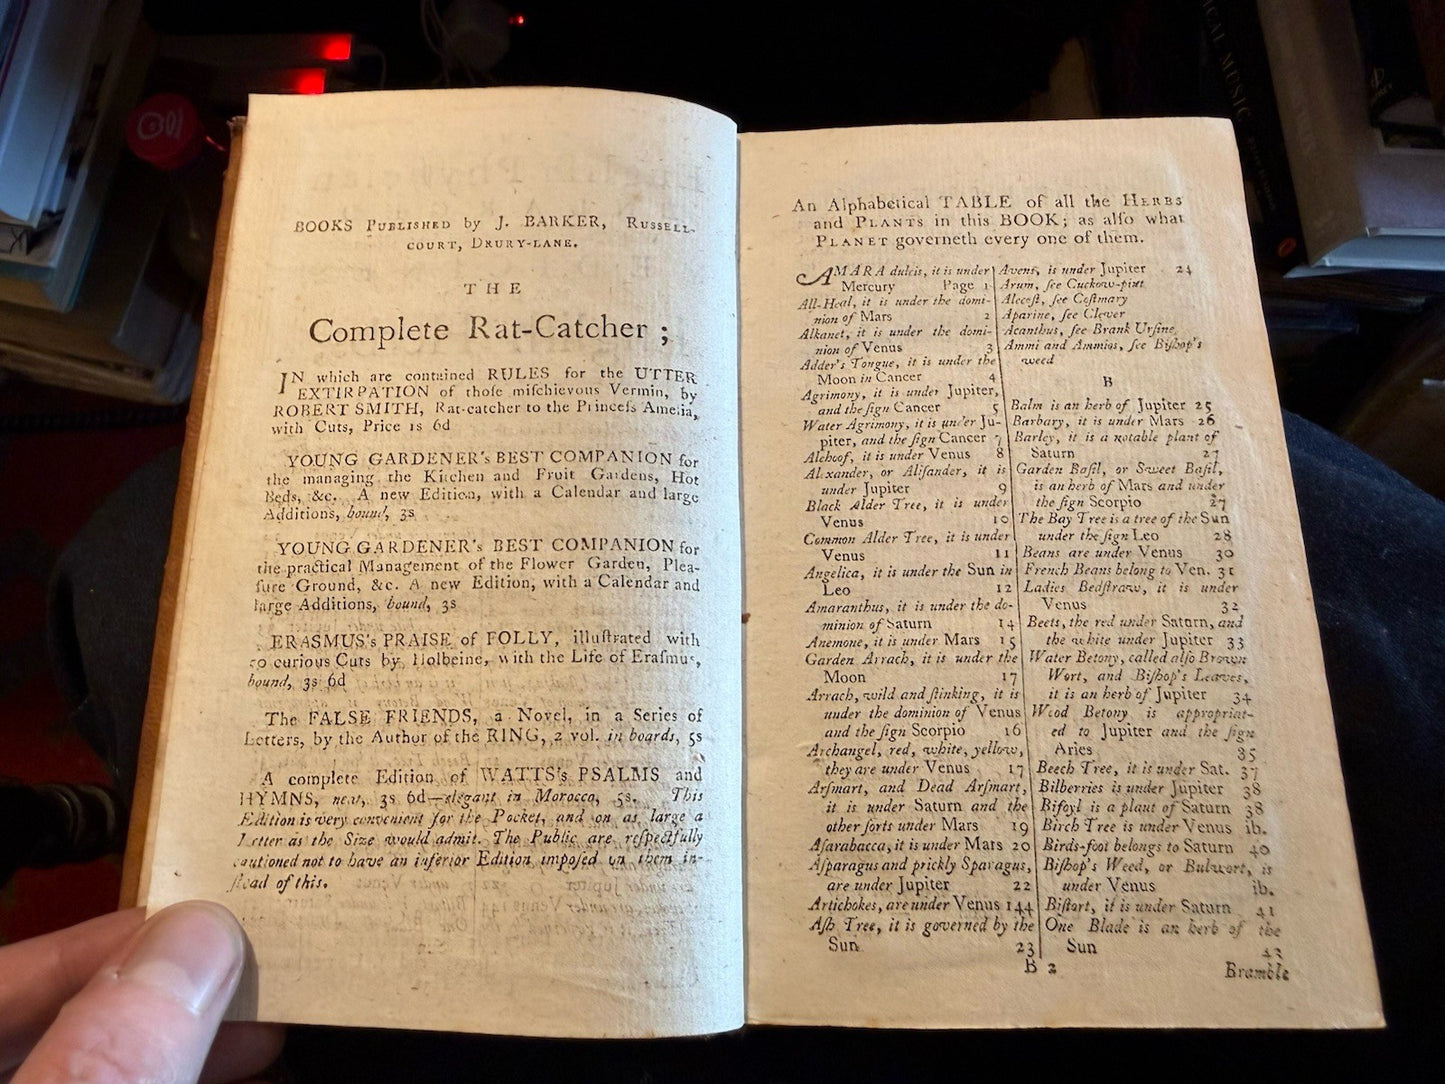 BOOKS PUBLISHED by J. BARKER, RUSSELL-
COURT, DRURY-LANE.
THE
Complete Rat-Catcher;
IN which are contained RULES for the UTTER
EXTIRPATION of thoſe miſchievous Vermin, by
ROBERT SMITH, Rat-catcher to the Princeſs Amelia,
with Cuts, Price 1s 6d
YOUNG GARDENER's BEST COMPANION for
the managing the Kitchen and Fruit Gardens, Hot
Beds, &c. A new Edition, with a Calendar and large
Additions, bound, 3s
YOUNG GARDENER's BEST COMPANION for
the practical Management of the Flower Garden, Plea-
ſure Ground, &c. A new Edition, with a Calendar and
large Additions, bound, 3s
ERASMUS's PRAISE of FOLLY, illuſtrated with
50 curious Cuts by Holbeine, with the Life of Eraſmus,
bound, 3s 6d
The FALSE FRIENDS, a Novel, in a Series of
Letters, by the Author of the RING, 2 vol. in boards, 5s
A complete Edition of WATTS's PSALMS and
HYMNS, new, 3s 6d—elegant in Morocco, 5s. This
Edition is very convenient for the Pocket, and on as large a
Letter as the Size would admit. The Public are reſpectfully
cautioned not to have an inferior Edition impoſed on them in-
ſtead of this.
An Alphabetical TABLE of all the HERBS
and PLANTS in this BOOK; as alſo what
PLANET governeth every one of them.
AMARA dulcis, it is under
Mercury Page 1
All-Heal, it is under the domi-
nion of Mars 2
Alkanet, it is under the domi-
nion of Venus 3
Adder's Tongue, it is under the
Moon in Cancer 4
Agrimony, it is under Jupiter,
and the ſign Cancer 5
Water Agrimony, it is under Ju-
piter, and the ſign Cancer 7
Alehoof, it is under Venus 8
Alexander, or Aliſander, it is
under Jupiter 9
Black Alder Tree, it is under
Venus 10
Common Alder Tree, it is under
Venus 11
Angelica, it is under the Sun in
Leo 12
Amaranthus, it is under the do-
minion of Saturn 14
Anemone, it is under Mars 15
Garden Arrach, it is under the
Moon 17
Arrach, wild and ſtinking, it is
under the dominion of Venus
and the ſign Scorpio 16
Archangel, red, white, yellow,
they are under Venus 17
Arſmart, and Dead Arſmart,
it is under Saturn and the
other ſorts under Mars 19
Aſarabacca, it is under Mars 20
Aſparagus and prickly Sparagus,
are under Jupiter 22
Artichokes, are under Venus 144
Aſh Tree, it is governed by the
Sun 23
Avens, is under Jupiter 24
Arum, ſee Cuckow-pint
Alecoſt, ſee Coſtmary
Aparine, ſee Clever
Acanthus, ſee Brank Urſine
Ammi and Ammios, ſee Biſhop's
weed
B
Balm is an herb of Jupiter 25
Barbary, it is under Mars 26
Barley, it is a notable plant of
Saturn 27
Garden Baſil, or Sweet Baſil,
is an herb of Mars and under
the ſign Scorpio 27
The Bay Tree is a tree of the Sun
under the ſign Leo 28
Beans are under Venus 30
French Beans belong to Ven. 31
Ladies Bedſtraw, it is under
Venus 32
Beets, the red under Saturn, and
the white under Jupiter 33
Water Betony, called alſo Brown
Wort, and Biſhop's Leaves,
it is an herb of Jupiter 34
Wood Betony is appropriat-
ed to Jupiter and the ſign
Aries 35
Beech Tree, it is under Sat. 37
Bilberries is under Jupiter 38
Bifoyl is a plant of Saturn 38
Birch Tree is under Venus ib.
Birds-foot belongs to Saturn 40
Biſhop's Weed, or Bulwort, is
under Venus ib.
Biſtort, it is under Saturn 41
One Blade is an herb of the
Sun 42
B 2
Bramble
MUSIC